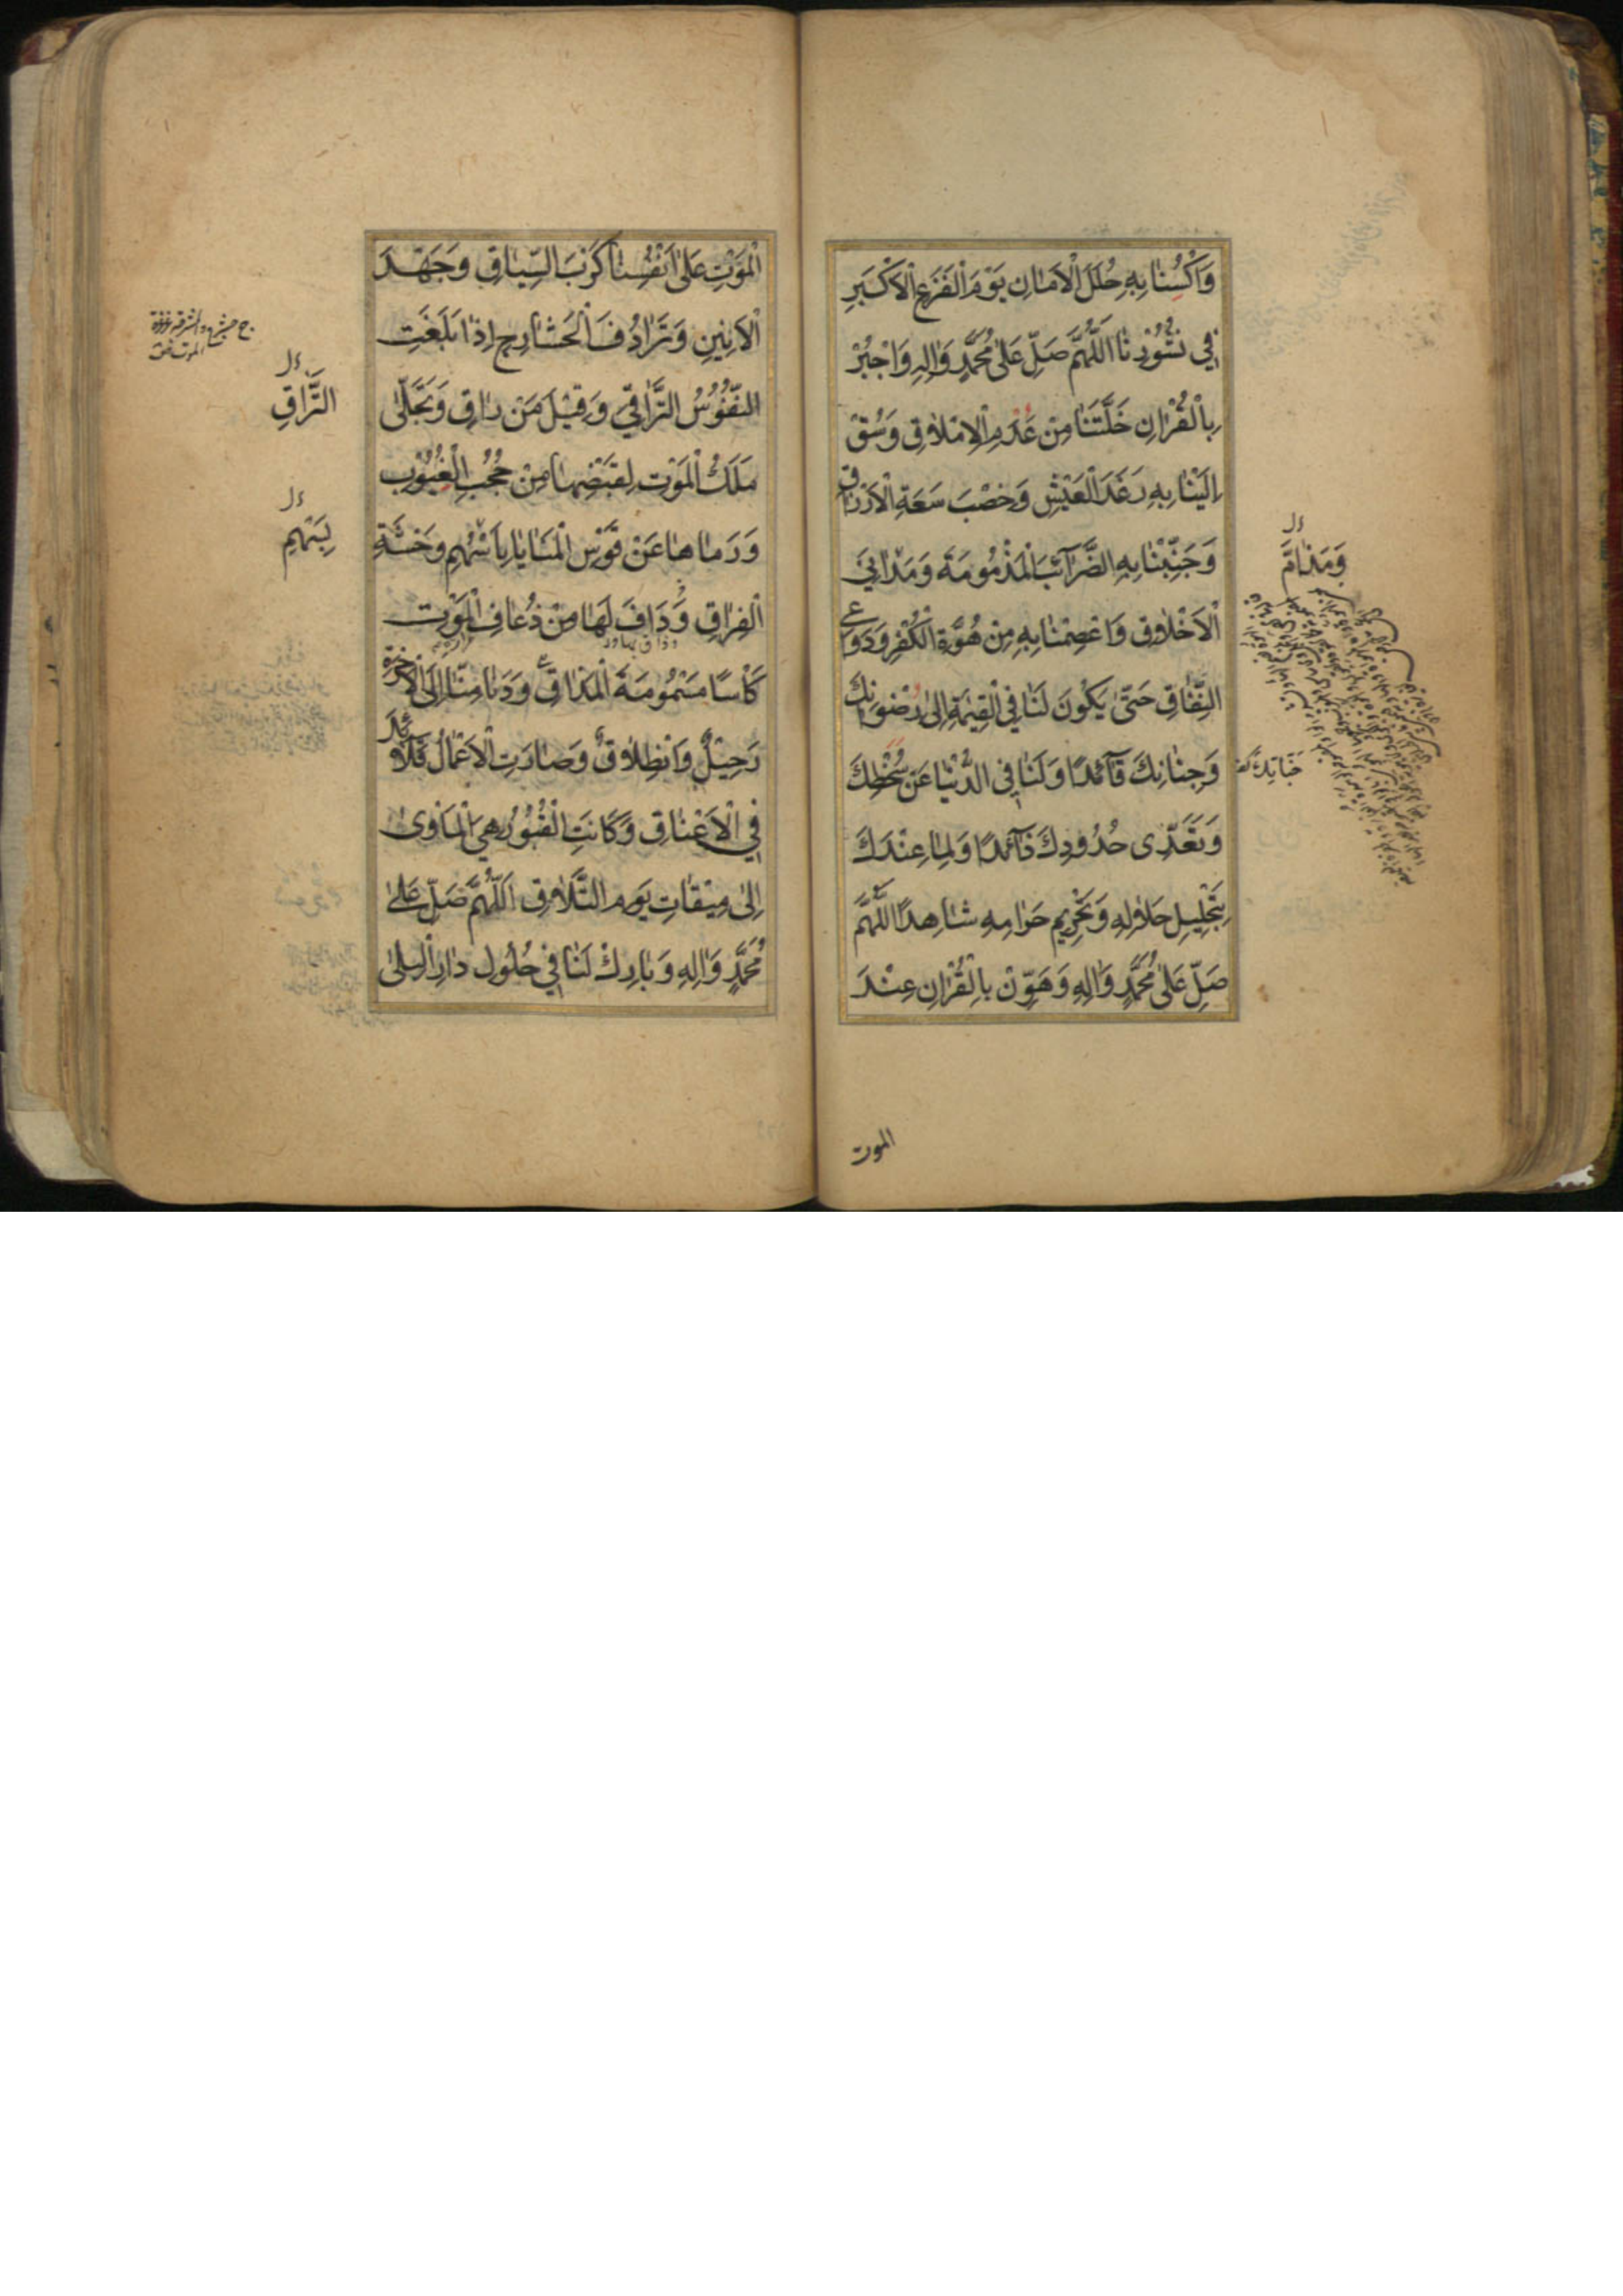 وَاكْسُنَا بِهِ حُلَلَ الْاَمَانِ يَوْمَ الْفَزَعِ الْاَكْبَرِ
فِي نُشُوْرِنَا اَللّٰهُمَّ صَلِّ عَلٰى مُحَمَّدٍ وَاٰلِهِ وَاجْبُرْ
بِالْقُرْاٰنِ خَلَّتَنَا مِنْ عَدَمِ الْاِمْلَاقِ وَسُقْ
اِلَيْنَا بِهِ رَغَدَ الْعَيْشِ وَخِصْبَ سَعَةِ الْاَرْزَاقِ
وَجَنِّبْنَا بِهِ الضَّرَآئِبَ الْمَذْمُوْمَةَ وَمَدَانِيَ
الْاَخْلَاقِ وَاعْصِمْنَا بِهِ مِنْ هُوَّةِ الْكُفْرِ وَدَوَاعِي
النِّفَاقِ حَتّٰى يَكُوْنَ لَنَا فِي الْقِيٰمَةِ اِلٰى رِضْوَانِكَ
وَجِنَانِكَ قَآئِدًا وَلَنَا فِي الدُّنْيَا عَنْ سُخْطِكَ
وَتَعَدِّى حُدُوْدِكَ ذَآئِدًا وَلِمَا عِنْدَكَ
بِتَحْلِيْلِ حَلَالِهِ وَتَحْرِيْمِ حَرَامِهِ شَاهِدًا اَللّٰهُمَّ
صَلِّ عَلٰى مُحَمَّدٍ وَاٰلِهِ وَهَوِّنْ بِالْقُرْاٰنِ عِنْدَ
الموت
وَمَذَامَّ
الْمَوْتِ عَلٰى اَنْفُسِنَا كَرْبَ السِّيَاقِ وَجَهْدَ
الْاَنِيْنِ وَتَرَادُفَ الْحَشَارِجِ اِذَا بَلَغَتِ
النُّفُوْسُ التَّرَاقِيَ وَقِيْلَ مَنْ رَاقٍ وَتَجَلّٰى
مَلَكُ الْمَوْتِ لِقَبْضِهَا مِنْ حُجُبِ الْغُيُوْبِ
وَرَمَاهَا عَنْ قَوْسِ الْمَنَايَا بِاَسْهُمِ وَحْشَةِ
الْفِرَاقِ وَدَافَ لَهَا مِنْ ذُعَافِ الْمَوْتِ
كَاْسًا مَسْمُوْمَةَ الْمَذَاقِ وَدَنَا مِنَّا اِلَى الْاٰخِرَةِ
رَحِيْلٌ وَانْطِلَاقٌ وَصَارَتِ الْاَعْمَالُ قَلَآئِدَ
فِي الْاَعْنَاقِ وَكَانَتِ الْقُبُوْرُ هِيَ الْمَاْوٰى
اِلٰى مِيْقَاتِ يَوْمِ التَّلَاقِ اَللّٰهُمَّ صَلِّ عَلٰى
مُحَمَّدٍ وَاٰلِهِ وَبَارِكْ لَنَا فِي حُلُوْلِ دَارِ الْبِلٰى
التَّرَاقِ